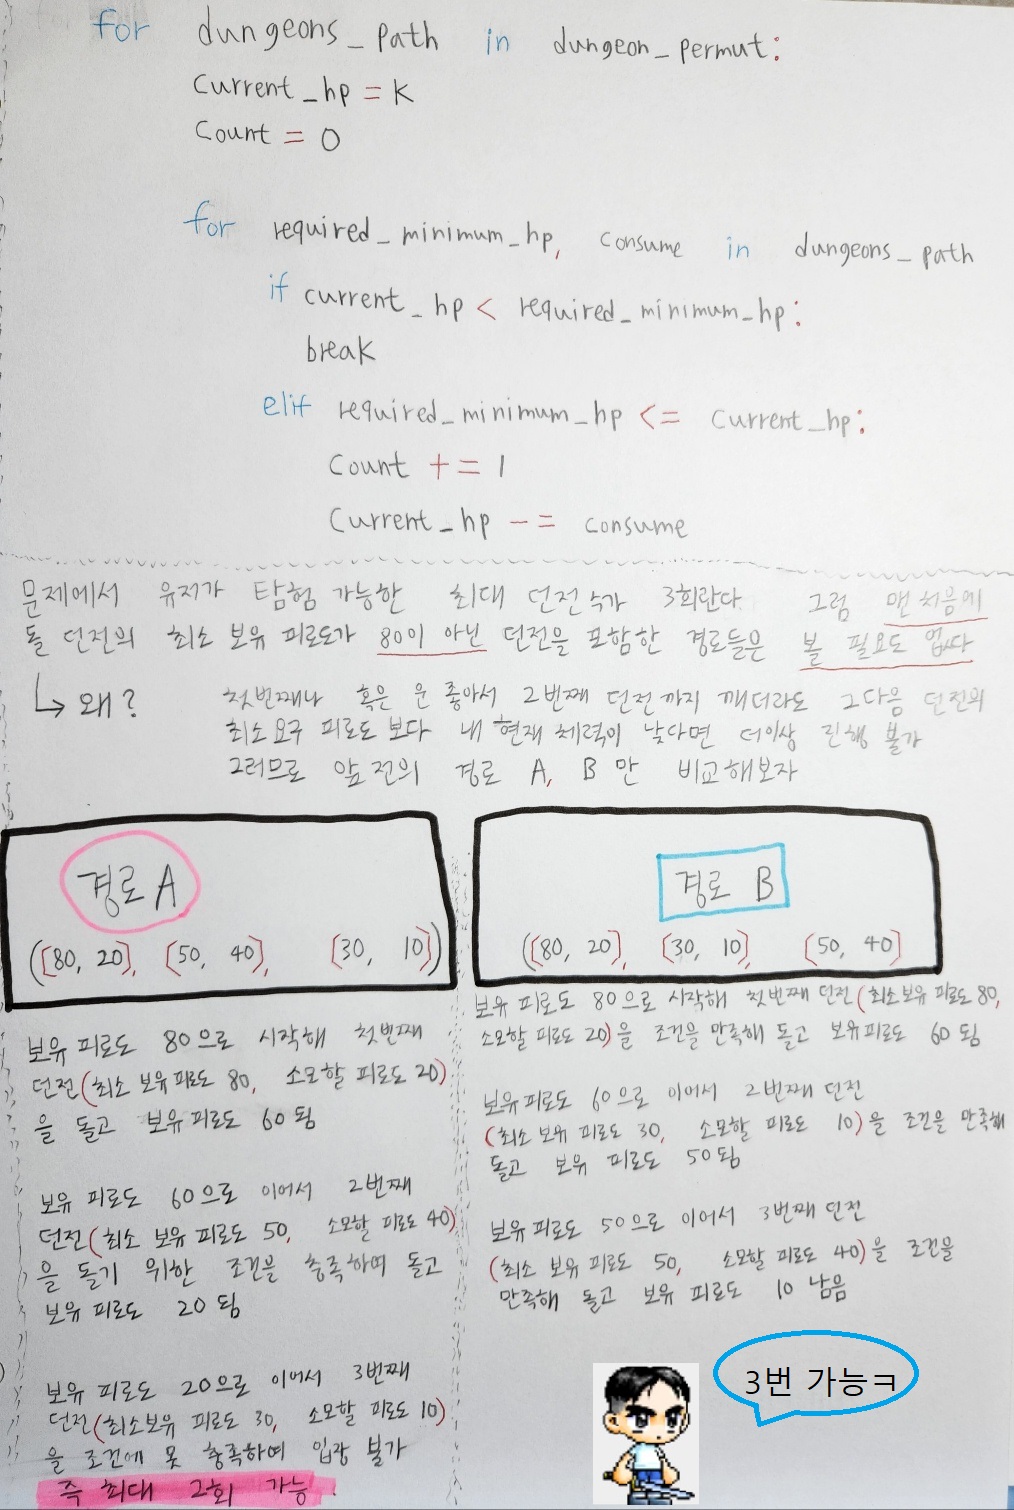 for dungeons_path in dungeon_permut:
current_hp = K
count = 0
for required_minimum_hp, consume in dungeons_path
if current_hp < required_minimum_hp:
break
elif required_minimum_hp <= current_hp:
count += 1
current_hp -= consume
문제에서 유저가 탐험 가능한 최대 던전 수가 3회란다 그럼 맨 처음에
돌 던전의 최소 보유 피로도가 80이 아닌 던전을 포함한 경로들은 볼 필요도 없다
↳ 왜? 첫번째나 혹은 운 좋아서 2번째 던전까지 깨더라도 그다음 던전의
최소요구 피로도 보다 내 현재 체력이 낮다면 더이상 진행 불가
그러므로 앞전의 경로 A, B 만 비교해보자
경로 A
([80, 20], [50, 40], [30, 10])
보유 피로도 80으로 시작해 첫번째
던전(최소 보유 피로도 80, 소모할 피로도 20)
을 돌고 보유피로도 60 됨
보유 피로도 60으로 이어서 2번째
던전(최소 보유 피로도 50, 소모할 피로도 40)
을 돌기 위한 조건을 충족하여 돌고
보유 피로도 20 됨
보유 피로도 20으로 이어서 3번째
던전(최소보유 피로도 30, 소모할 피로도 10)
을 조건에 못 충족하여 입장 불가
즉 최대 2회 가능.
경로 B
([80, 20], [30, 10], [50, 40]
보유 피로도 80으로 시작해 첫번째 던전(최소보유 피로도 80,
소모할 피로도 20)을 조건을 만족해 돌고 보유피로도 60 됨
보유 피로도 60으로 이어서 2번째 던전
(최소 보유 피로도 30, 소모할 피로도 10)을 조건을 만족해
돌고 보유 피로도 50 됨
보유 피로도 50으로 이어서 3번째 던전
(최소 보유 피로도 50, 소모할 피로도 40)을 조건을
만족해 돌고 보유 피로도 10 남음
3번 가능ㅋ